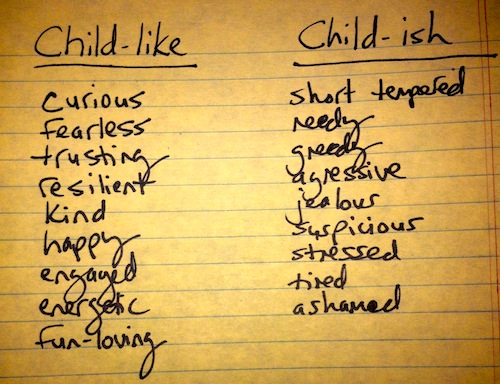 Child-like
curious
fearless
trusting
resilient
kind
happy
engaged
energetic
fun-loving
Child-ish
short tempered
needy
greedy
agressive
jealous
suspicious
stressed
tired
ashamed